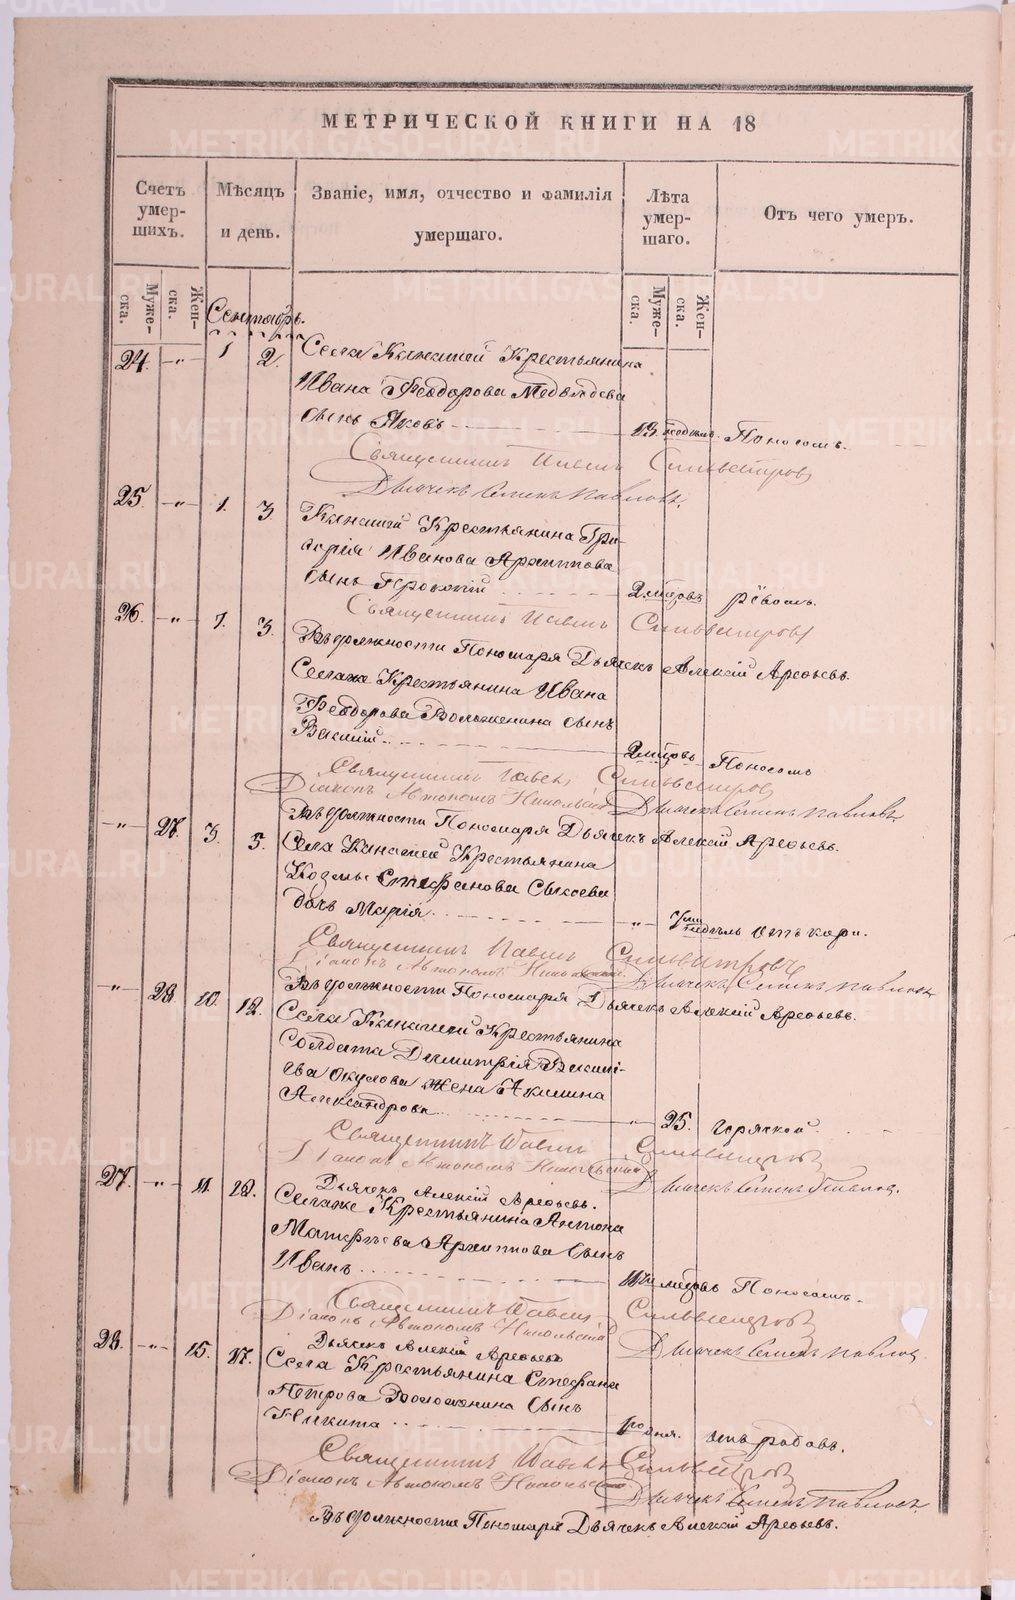 МЕТРИЧЕСКОЙ КНИГИ НА 18
Счетъ умер-шихъ.
Мѣсяцъ и день.
Званіе, имя, отчество и фамилія умершаго.
Лѣта умер-шаго.
Отъ чего умеръ.
Муже-ска.
Жен-ска.
Муже-ска.
Жен-ска.
Сентябрь.
24. -„- 1 2. Села Крестьянина
Ивана Феодорова Медвѣдева
сынъ Яковъ 13. Поносомъ.
Священникъ Павелъ Сильвестровъ
Дьячекъ Семенъ Павловъ.
25. -„- 1. 3. Крестьянина Гри-
горія Иванова Архипова
сынъ 2 мѣсцовъ
Священникъ Павелъ Сильвестровъ
26. -„- 1. 3. Въ должности Пономаря Дьячекъ Алексій Арефьевъ.
Села же Крестьянина Ивана
Феодорова сынъ
2 мѣсцовъ Поносомъ
Священникъ Павелъ Сильвестровъ
Діаконъ Автономъ Никольскій Дьячекъ Семенъ Павловъ
Въ должности Пономаря Дьячекъ Алексій Арефьевъ.
-„- 27. 3. 5. Села Крестьянина
Козмы Стефанова Сысоева
дочь Марія -„- недѣль отъ кори.
Священникъ Павелъ Сильвестровъ
Діаконъ Автономъ Никольскій Дьячекъ Семенъ Павловъ
Въ должности Пономаря Дьячекъ Алексій Арефьевъ.
-„- 28. 10. 12. Села Крестьянина
Солдата Димитрія
Окулова жена Акилина
Александрова -„- 25. горячкой.
Священникъ Павелъ Сильвестровъ
Діаконъ Автономъ Никольскій Дьячекъ Семенъ Павловъ.
Дьячекъ Алексій Арефьевъ.
27. -„- 11. 12. Села же Крестьянина Антона
Матфѣева Архипова сынъ
Иванъ мѣсцовъ Поносомъ.
Священникъ Павелъ Сильвестровъ
Діаконъ Автономъ Никольскій Дьячекъ Семенъ Павловъ.
Дьячекъ Алексій Арефьевъ
28. -„- 15. 17. Села Крестьянина Стефана
Петрова сынъ
Никита 1го дня. отъ родовъ.
Священникъ Павелъ Сильвестровъ
Діаконъ Автономъ Никольскій Дьячекъ Семенъ Павловъ
Въ должности Пономаря Дьячекъ Алексій Арефьевъ.
METRIKI.GASO-URAL.RU